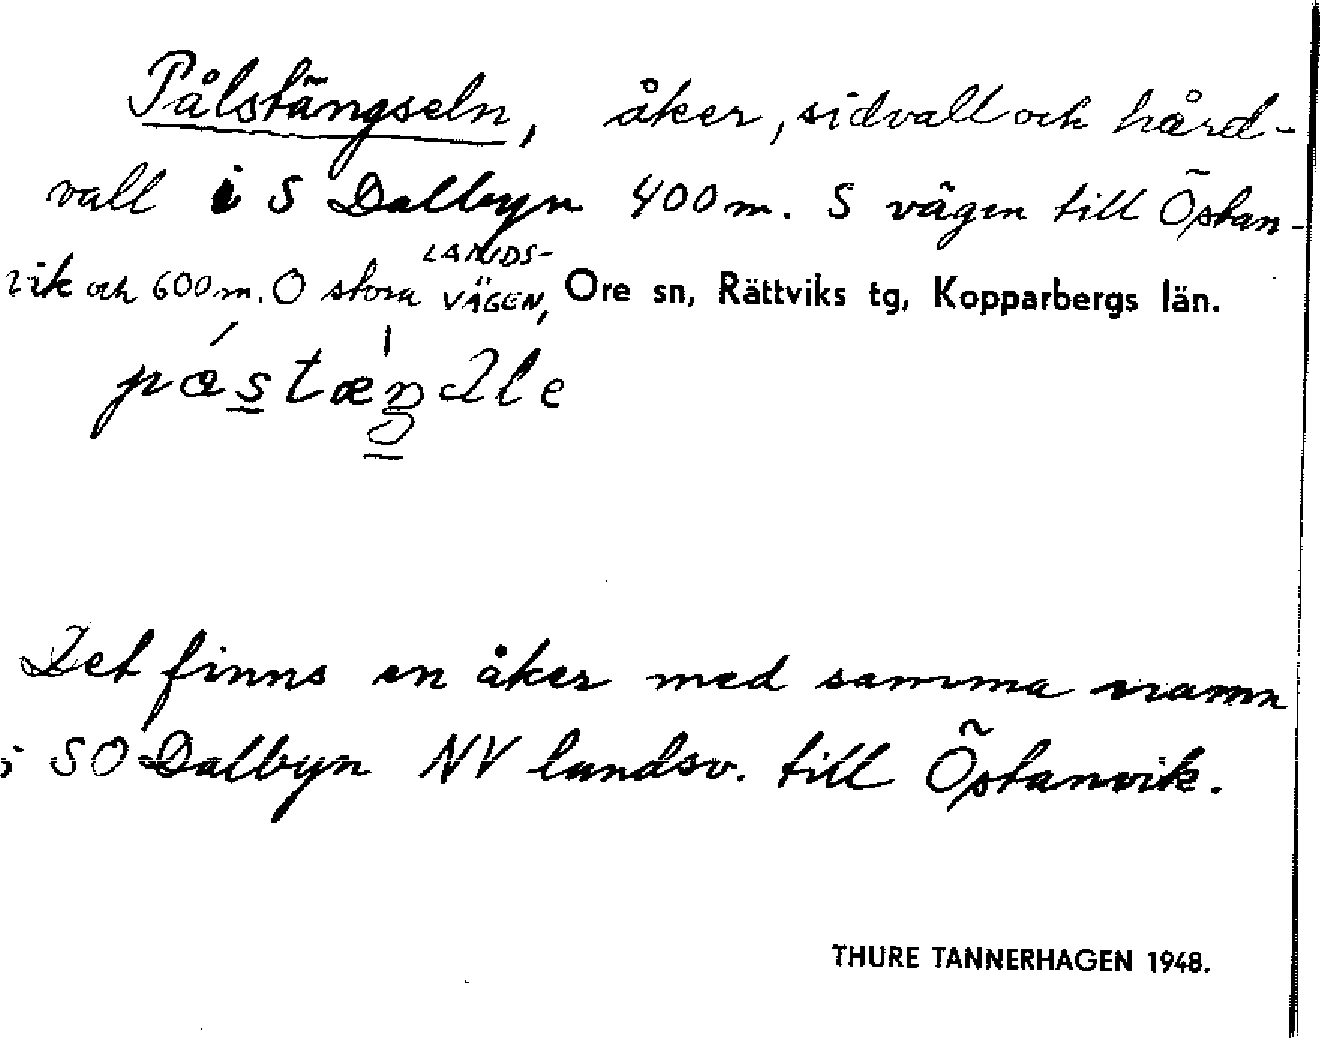 Pålstängseln, åker, sidvall och hård-
vall i S Dalbyn 400 m. S vägen till Östan-
vik och 600 m. O stora LANDS-
VÄGEN, Ore sn, Rättviks tg, Kopparbergs län.
Det finns en åker med samma namn
i SO Dalbyn NV landsv. till Östanvik.
THURE TANNERHAGEN 1948.